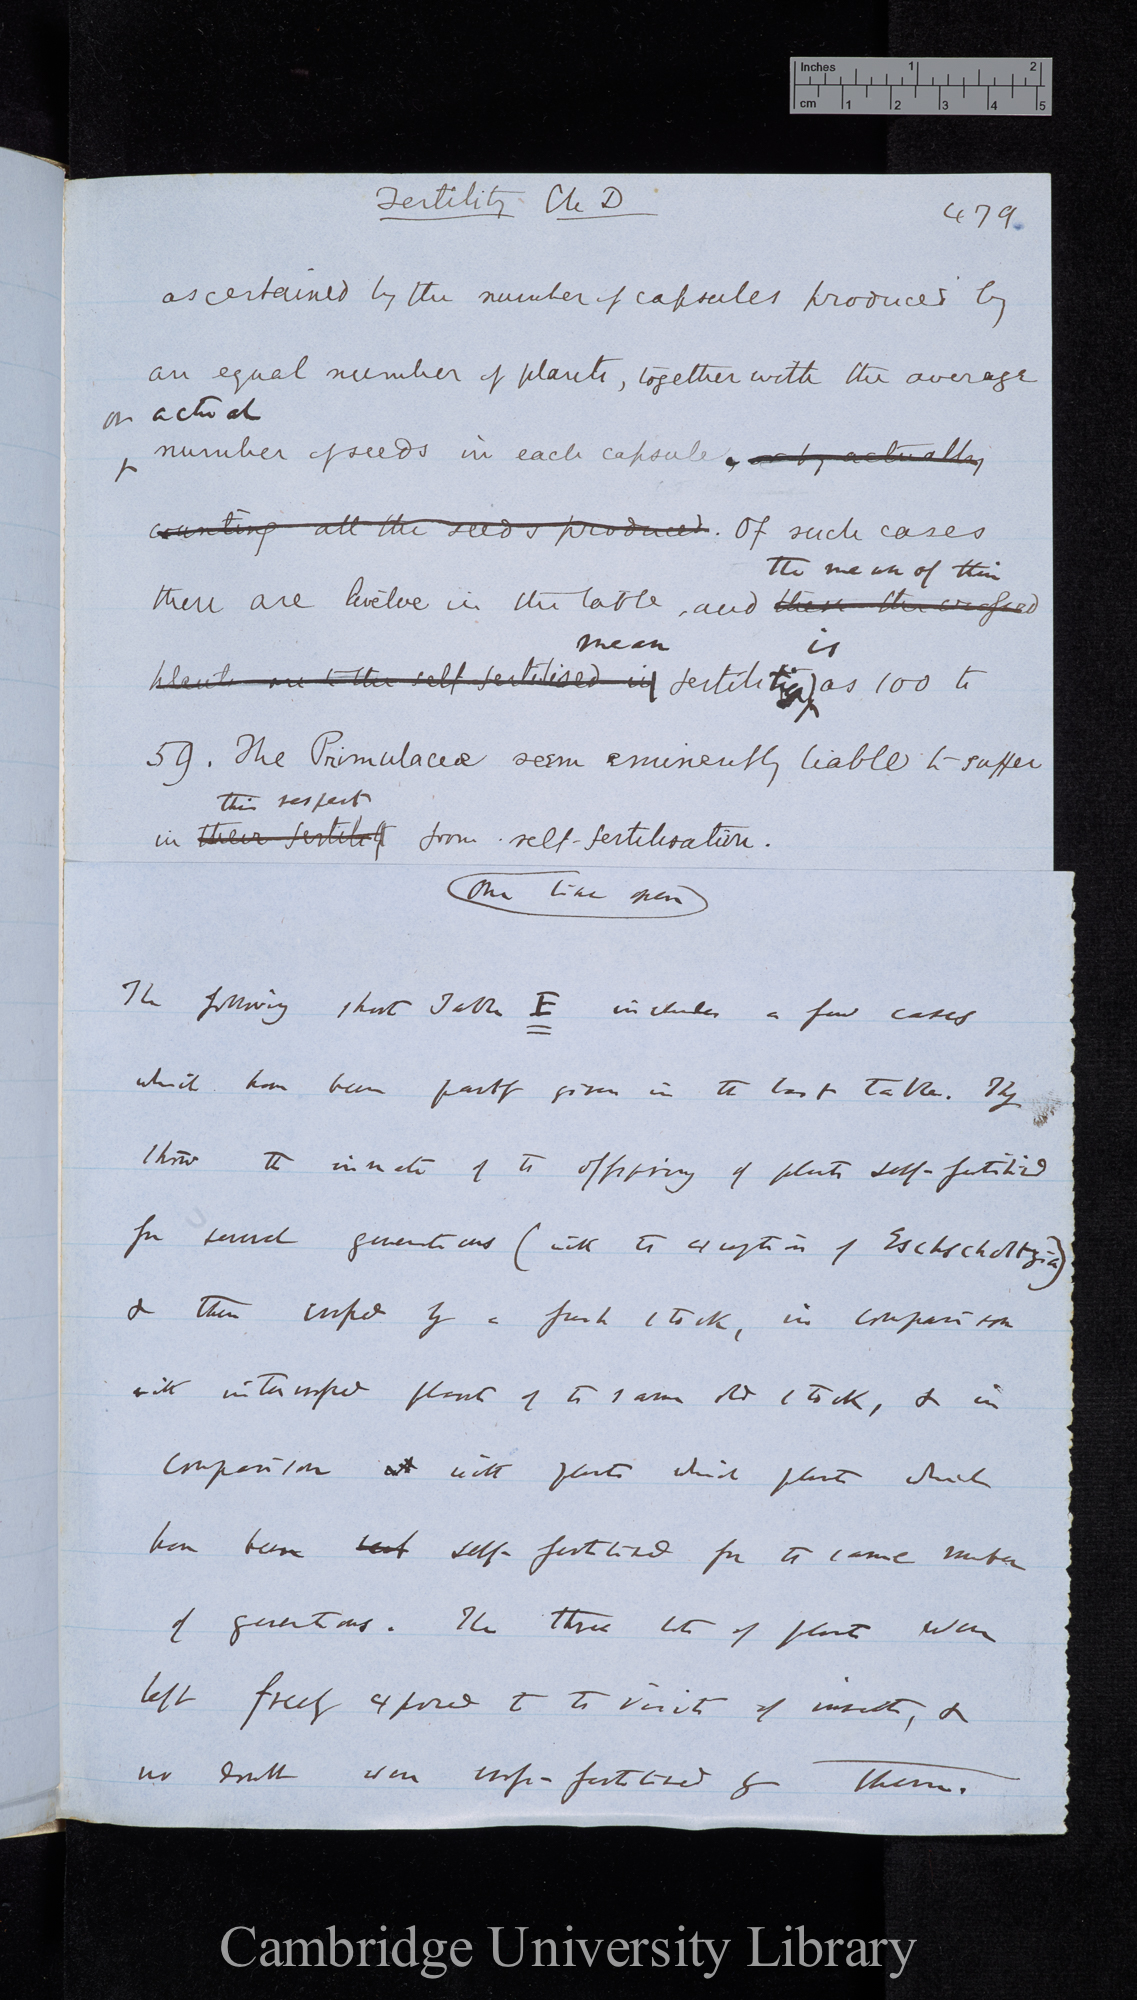 Inches 1 2
cm 1 2 3 4 5
Fertility Ch D
479
ascertained by the number of capsules produced by
an equal number of plants, together with the average
or actual
number of seeds in each capsule, or by actually
counting all the seeds produced. Of such cases
the mean of this
there are twelve in the table, and these the crossed
mean is
plants are to the self-fertilised in fertility as 100 to
59. The Primulaceæ seem eminently liable to suffer
this respect
in their fertility from self-fertilisation.
One line open
The following short Table E includes a few cases
which have been partly given in the last table. They
show the innate of the offspring of plants self-fertilised
for several generations (with the exception of Eschscholtzia)
& then crossed by a fresh stock, in comparison
with intercrossed plants of the same old stock, & in
comparison with plants which plants which
have been self-fertilised for the same number
of generations. The three lots of plants were
left freely exposed to the visits of insects, &
no doubt were cross-fertilised by them.
Cambridge University Library